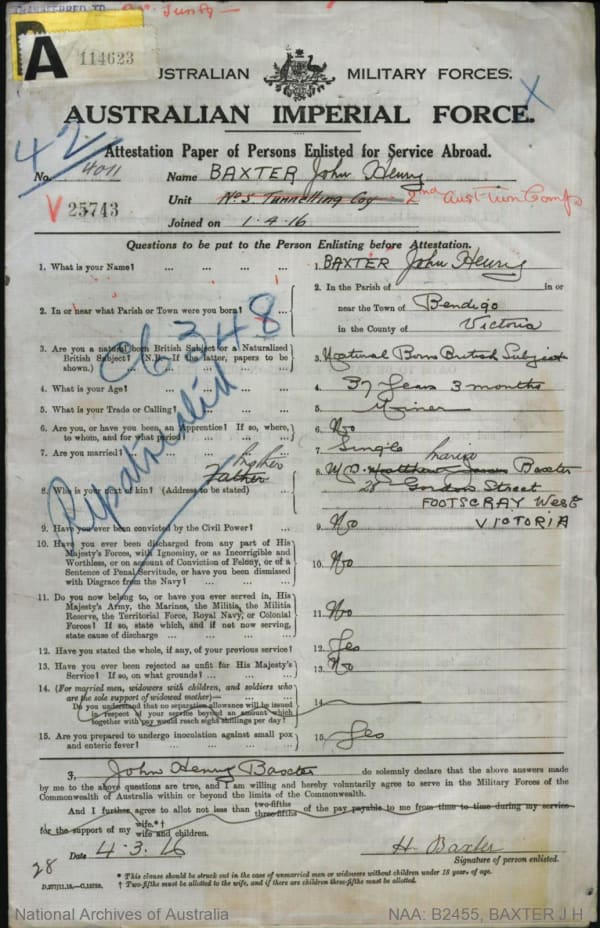 A 114623
AUSTRALIAN MILITARY FORCES.
AUSTRALIAN IMPERIAL FORCE. X
42
Attestation Paper of Persons Enlisted for Service Abroad.
No. 4011 Name BAXTER John Henry
V 25743 Unit No 5 Tunnelling Coy 2nd
Joined on 1.4.16
Questions to be put to the Person Enlisting before Attestation.
1. What is your Name? ... ... ... ... 1. BAXTER John Henry
2. In or near what Parish or Town were you born? 2. In the Parish of in or
near the Town of Bendigo
in the County of Victoria
3. Are you a natural born British Subject or a Naturalized
British Subject? (N.B.—If the latter, papers to be
shown.) ... ... ... 3. Natural Born British Subject
4. What is your Age? ... ... ... 4. 37 years 3 months
5. What is your Trade or Calling? ... ... 5. Miner
6. Are you, or have you been, an Apprentice? If so, where,
to whom, and for what period ... ... 6. No
7. Are you married? ... ... ... 7. Single
8. Who is your next of kin? (Address to be stated) Father Baxter
28 Gordon Street
FOOTSCRAY West
VICTORIA
Repatriated
9. Have you ever been convicted by the Civil Power? 9. No
10. Have you ever been discharged from any part of His
Majesty's Forces, with Ignominy, or as Incorrigible and
Worthless, or on account of Conviction of Felony, or of a
Sentence of Penal Servitude, or have you been dismissed
with Disgrace from the Navy? ... ... ... 10. No
11. Do you now belong to, or have you ever served in, His
Majesty's Army, the Marines, the Militia, the Militia
Reserve, the Territorial Force, Royal Navy, or Colonial
Forces? If so, state which, and if not now serving,
state cause of discharge ... ... ... ... 11. No
12. Have you stated the whole, if any, of your previous service? 12. Yes
13. Have you ever been rejected as unfit for His Majesty's
Service? If so, on what grounds? ... ... 13. No
14. (For married men, widowers with children, and soldiers who
are the sole support of widowed mother)—
Do you understand that no separation allowance will be issued
in respect of your service beyond an amount which
together with pay would reach eight shillings per day? 14
15. Are you prepared to undergo inoculation against small pox
and enteric fever? ... ... ... ... 15. Yes
I, John Henry Baxter do solemnly declare that the above answers made
by me to the above questions are true, and I am willing and hereby voluntarily agree to serve in the Military Forces of the
Commonwealth of Australia within or beyond the limits of the Commonwealth.
And I further agree to allot not less than two-fifths three-fifths of the pay payable to me from time to time during my service
for the support of my wife.*† wife and children.
Date 4.3.16 H. Baxter
Signature of person enlisted.
28
* This clause should be struck out in the case of unmarried men or widowers without children under 18 years of age.
† Two-fifths must be allotted to the wife, and if there are children three-fifths must be allotted.
National Archives of Australia NAA: B2455, BAXTER J H